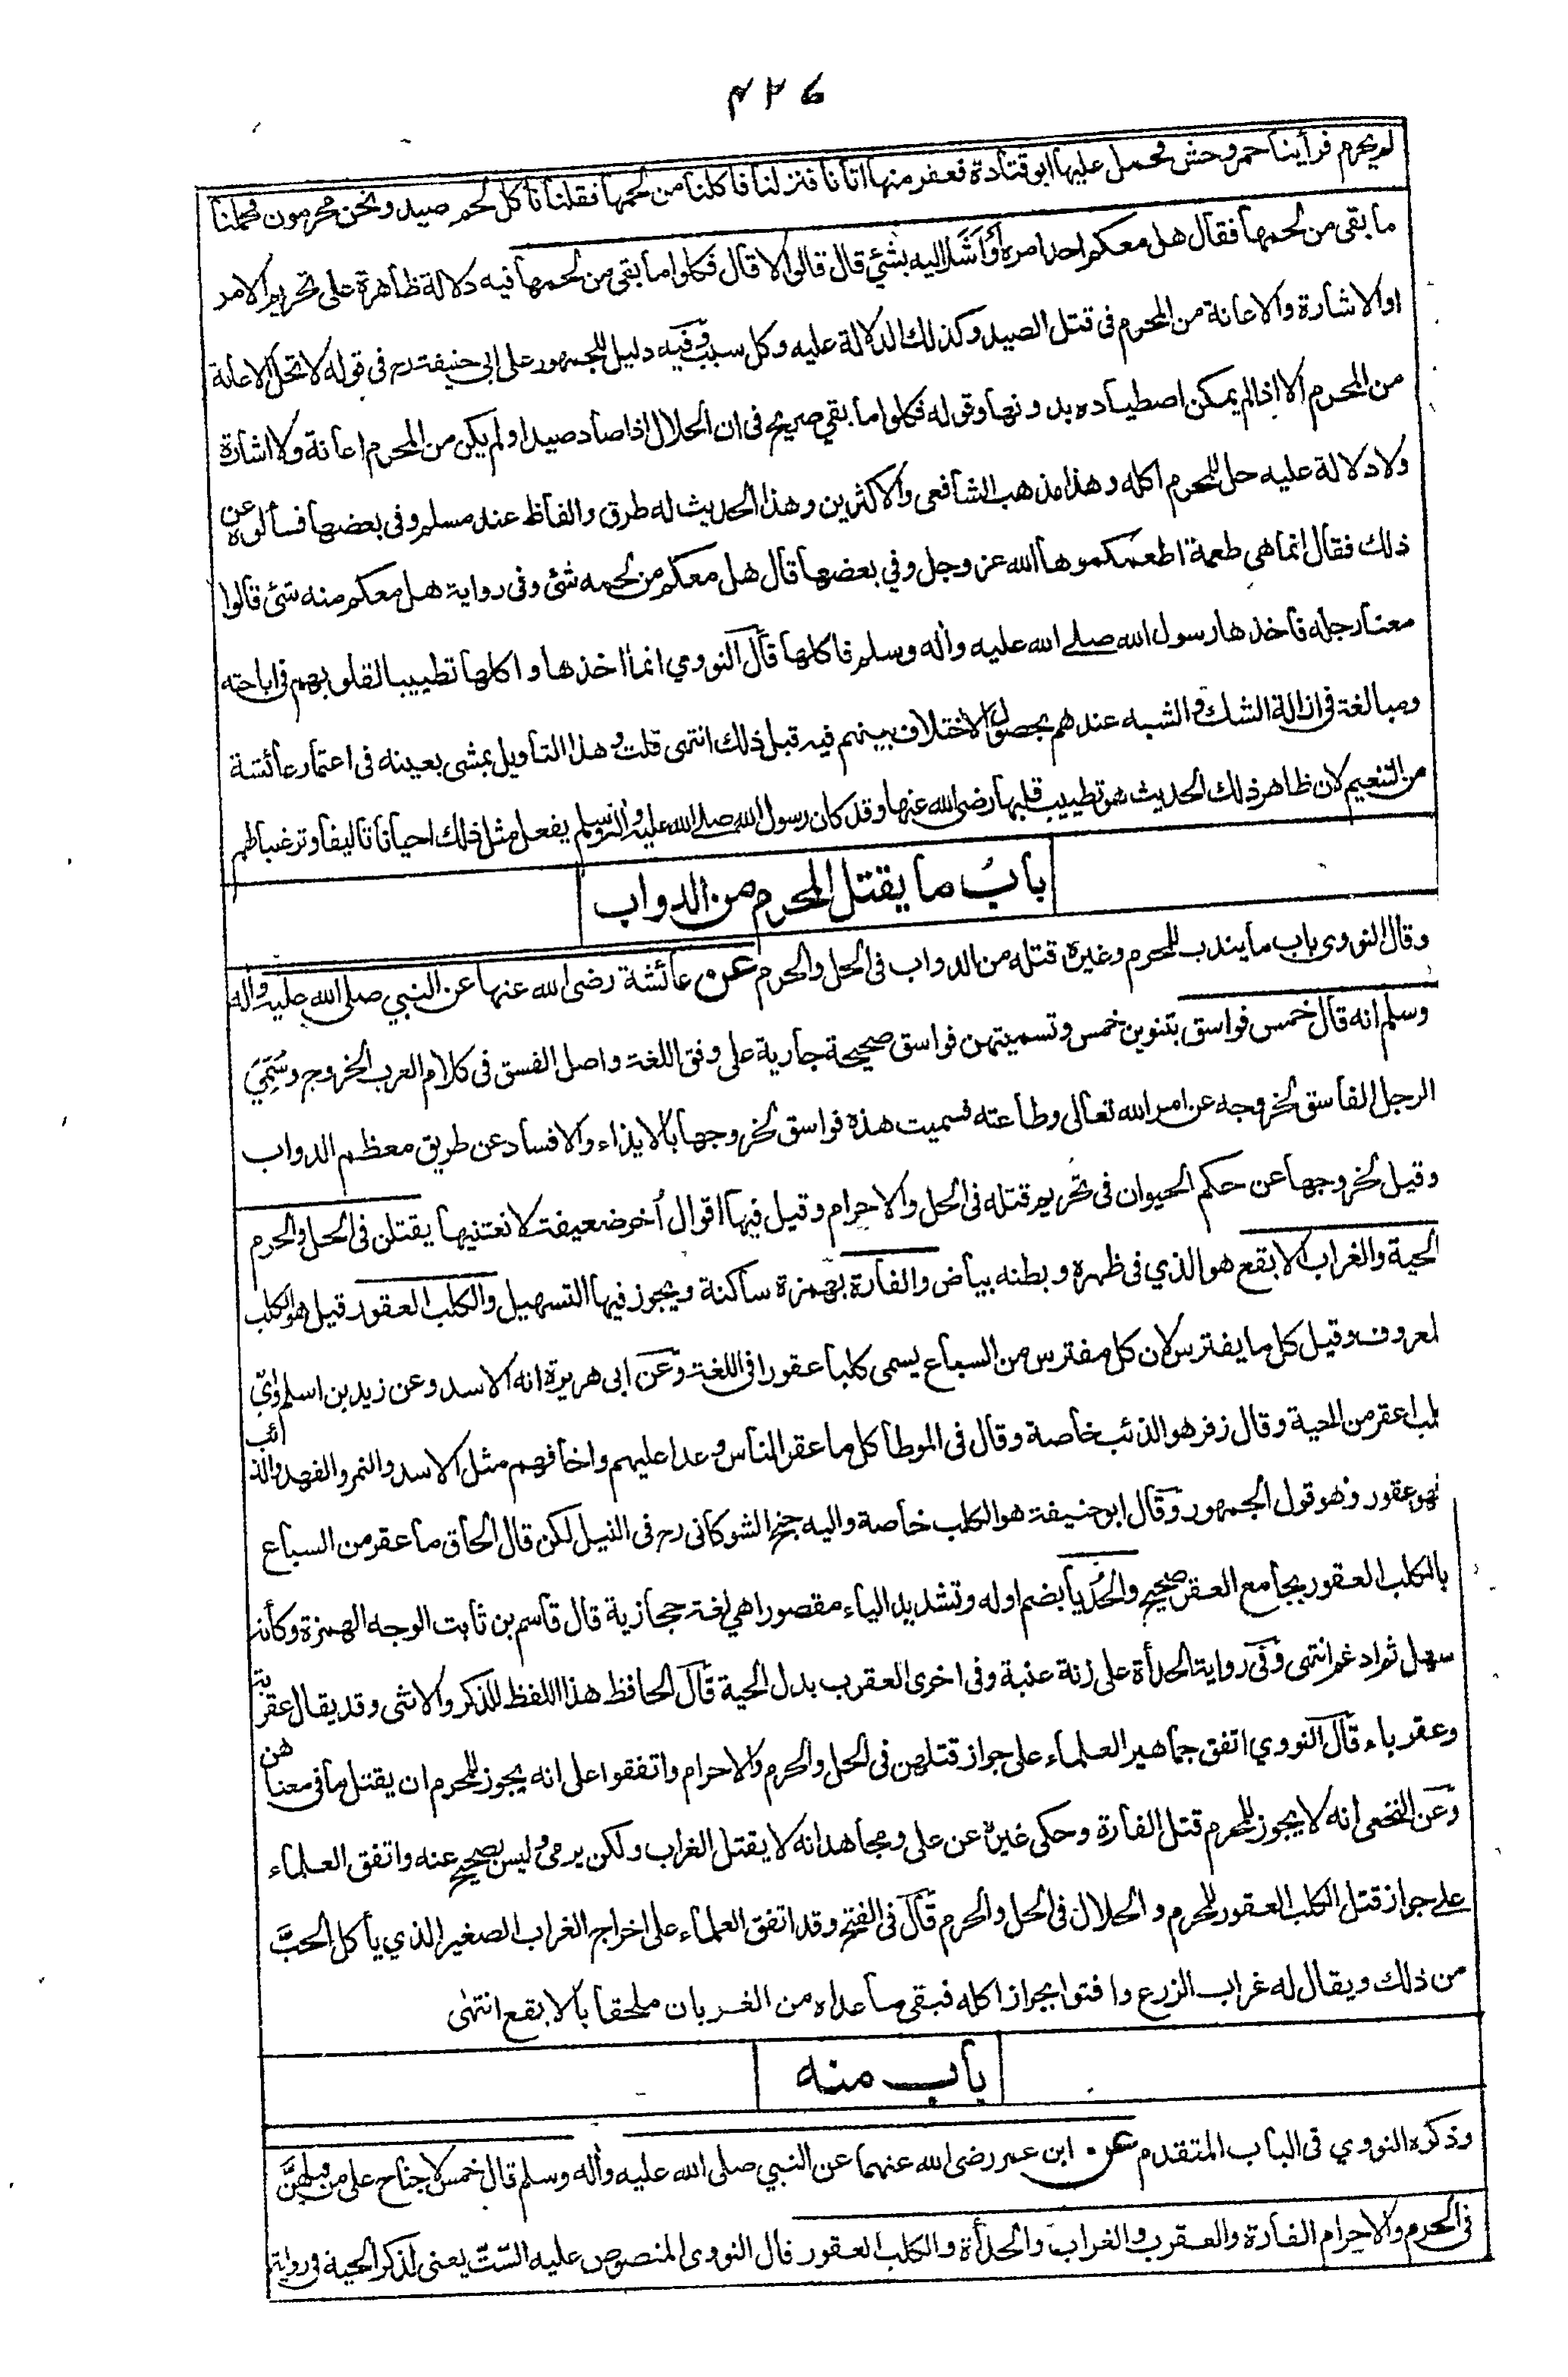 ۴۲۶
لم يحرم فرأينا حمر وحش فحمل عليها ابو قتادة فعقر منها اتانا فنزلنا فاكلنا من لحمها فقلنا نأكل لحم صيد ونحن محرمون فحملنا
ما بقى من لحمها فقال هل معكم احد امره أَوْ أَشَارَ اليه بشئ قال قالوا لا قال فكلوا ما بقى من لحمها فيه دلالة ظاهرة على تحريم الامر
او الاشارة والاعانة من المحرم فى قتل الصيد وكذلك الدلالة عليه وكل سبب وفيه دليل للجمهور على ابى حنيفة رح فى قوله لا تحل الاعانة
من المحرم الا اذا لم يمكن اصطياده بدونها وقوله فكلوا ما بقي صريح فى ان الحلال اذا صاد صيدا ولم يكن من المحرم اعانة ولا اشارة
ولا دلالة عليه حل للمحرم اكله وهذا مذهب الشافعى والاكثرين وهذا الحديث له طرق والفاظ عند مسلم وفى بعضها فسألوه عن
ذلك فقال انما هى طعمة اطعمكموها الله عز وجل وفي بعضها قال هل معكم من لحمه شئ وفى رواية هل معكم منه شئ قالوا
معنا رجله فاخذها رسول الله صلے الله عليه وأله وسلم فاكلها قال النووي انما اخذها واكلها تطييبا لقلوبهم فى اباحته
ومبالغة فى ازالة الشك والشبه عندهم بحصول الاختلاف بينهم فيه قبل ذلك انتهى قلت وهذا التاويل يمشى بعينه فى اعتمار عائشة
من التنعيم لان ظاهر ذلك الحديث هو تطييب قلبها رضى الله عنها وقد كان رسول الله صلے الله عليه وأله وسلم يفعل مثل ذلك احيانا تاليفا وترغيبا لهم
بابُ ما يقتل المحرم من الدواب
وقال النووى باب ما يندب للمحرم وغيره قتله من الدواب فى الحل والحرم عن عائشة رضى الله عنها عن النبي صلى الله عليه وأله
وسلم انه قال خمس فواسق بتنوين خمس وتسميتهن فواسق صحيحة جارية على وفق اللغة واصل الفسق فى كلام العرب الخروج وسُمِّيَ
الرجل الفاسق لخروجه عن امر الله تعالى وطاعته فسميت هذه فواسق لخروجها بالايذاء والافساد عن طريق معظم الدواب
وقيل لخروجها عن حكم الحيوان فى تحريم قتله فى الحل والاحرام وقيل فيها اقوال أخر ضعيفة لا نعتنيها يقتلن فى الحل والحرم
الحية والغراب الابقع هو الذي فى ظهره وبطنه بياض والفأرة بهمزة ساكنة ويجوز فيها التسهيل والكلب العقور قيل هو الكلب
المعروف وقيل كل ما يفترس لان كل مفترس من السباع يسمى كلبا عقورا فى اللغة وعن ابى هريرة انه الاسد وعن زيد بن اسلم وايّ
كلب اعقر من الحية وقال زفر هو الذئب خاصة وقال فى الموطأ كل ما عقر الناس وعدا عليهم واخافهم مثل الاسد والنمر والفهد والذئب
فهو عقور وهو قول الجمهور وقال ابو حنيفة هو الكلب خاصة واليه جنح الشوكانى رح فى النيل لكن قال الحاق ما عقر من السباع
بالكلب العقور بجامع العقر صحيح والحُدَيا بضم اوله وتشديد الياء مقصورا هي لغة حجازية قال قاسم بن ثابت الوجه الهمزة وكأنه
سهل ثم ادغم انتهى وفى رواية الحدأة على زنة عنبة وفى اخرى العقرب بدل الحية قال الحافظ هذا اللفظ للذكر والانثى وقد يقال عقربة
وعقرباء قال النووي اتفق جماهير العلماء على جواز قتلهن فى الحل والحرم والاحرام واتفقوا على انه يجوز للمحرم ان يقتل ما فى معناهن
وعن النخعى انه لا يجوز للمحرم قتل الفارة وحكى غيره عن على ومجاهد انه لا يقتل الغراب ولكن يرمى وليس بصحيح عنه واتفق العلماء
علے جواز قتل الكلب العقور للمحرم والحلال فى الحل والحرم قال فى الفتح وقد اتفق العلماء على اخراج الغراب الصغير الذي يأكل الحبَّ
من ذلك ويقال له غراب الزرع وافتوا بجواز اكله فبقى ما عداه من الغربان ملحقا بالابقع انتهٰى
باب منه
وذكره النووي فى الباب المتقدم عن ابن عمر رضى الله عنهما عن النبي صلى الله عليه وأله وسلم قال خمس لا جناح على من قتلهنَّ
فى الحرم والاحرام الفارة والعقرب والغراب والحدأة والكلب العقور قال النووى المنصوص عليه السّتّ يعنى لذكر الحية فى رواية